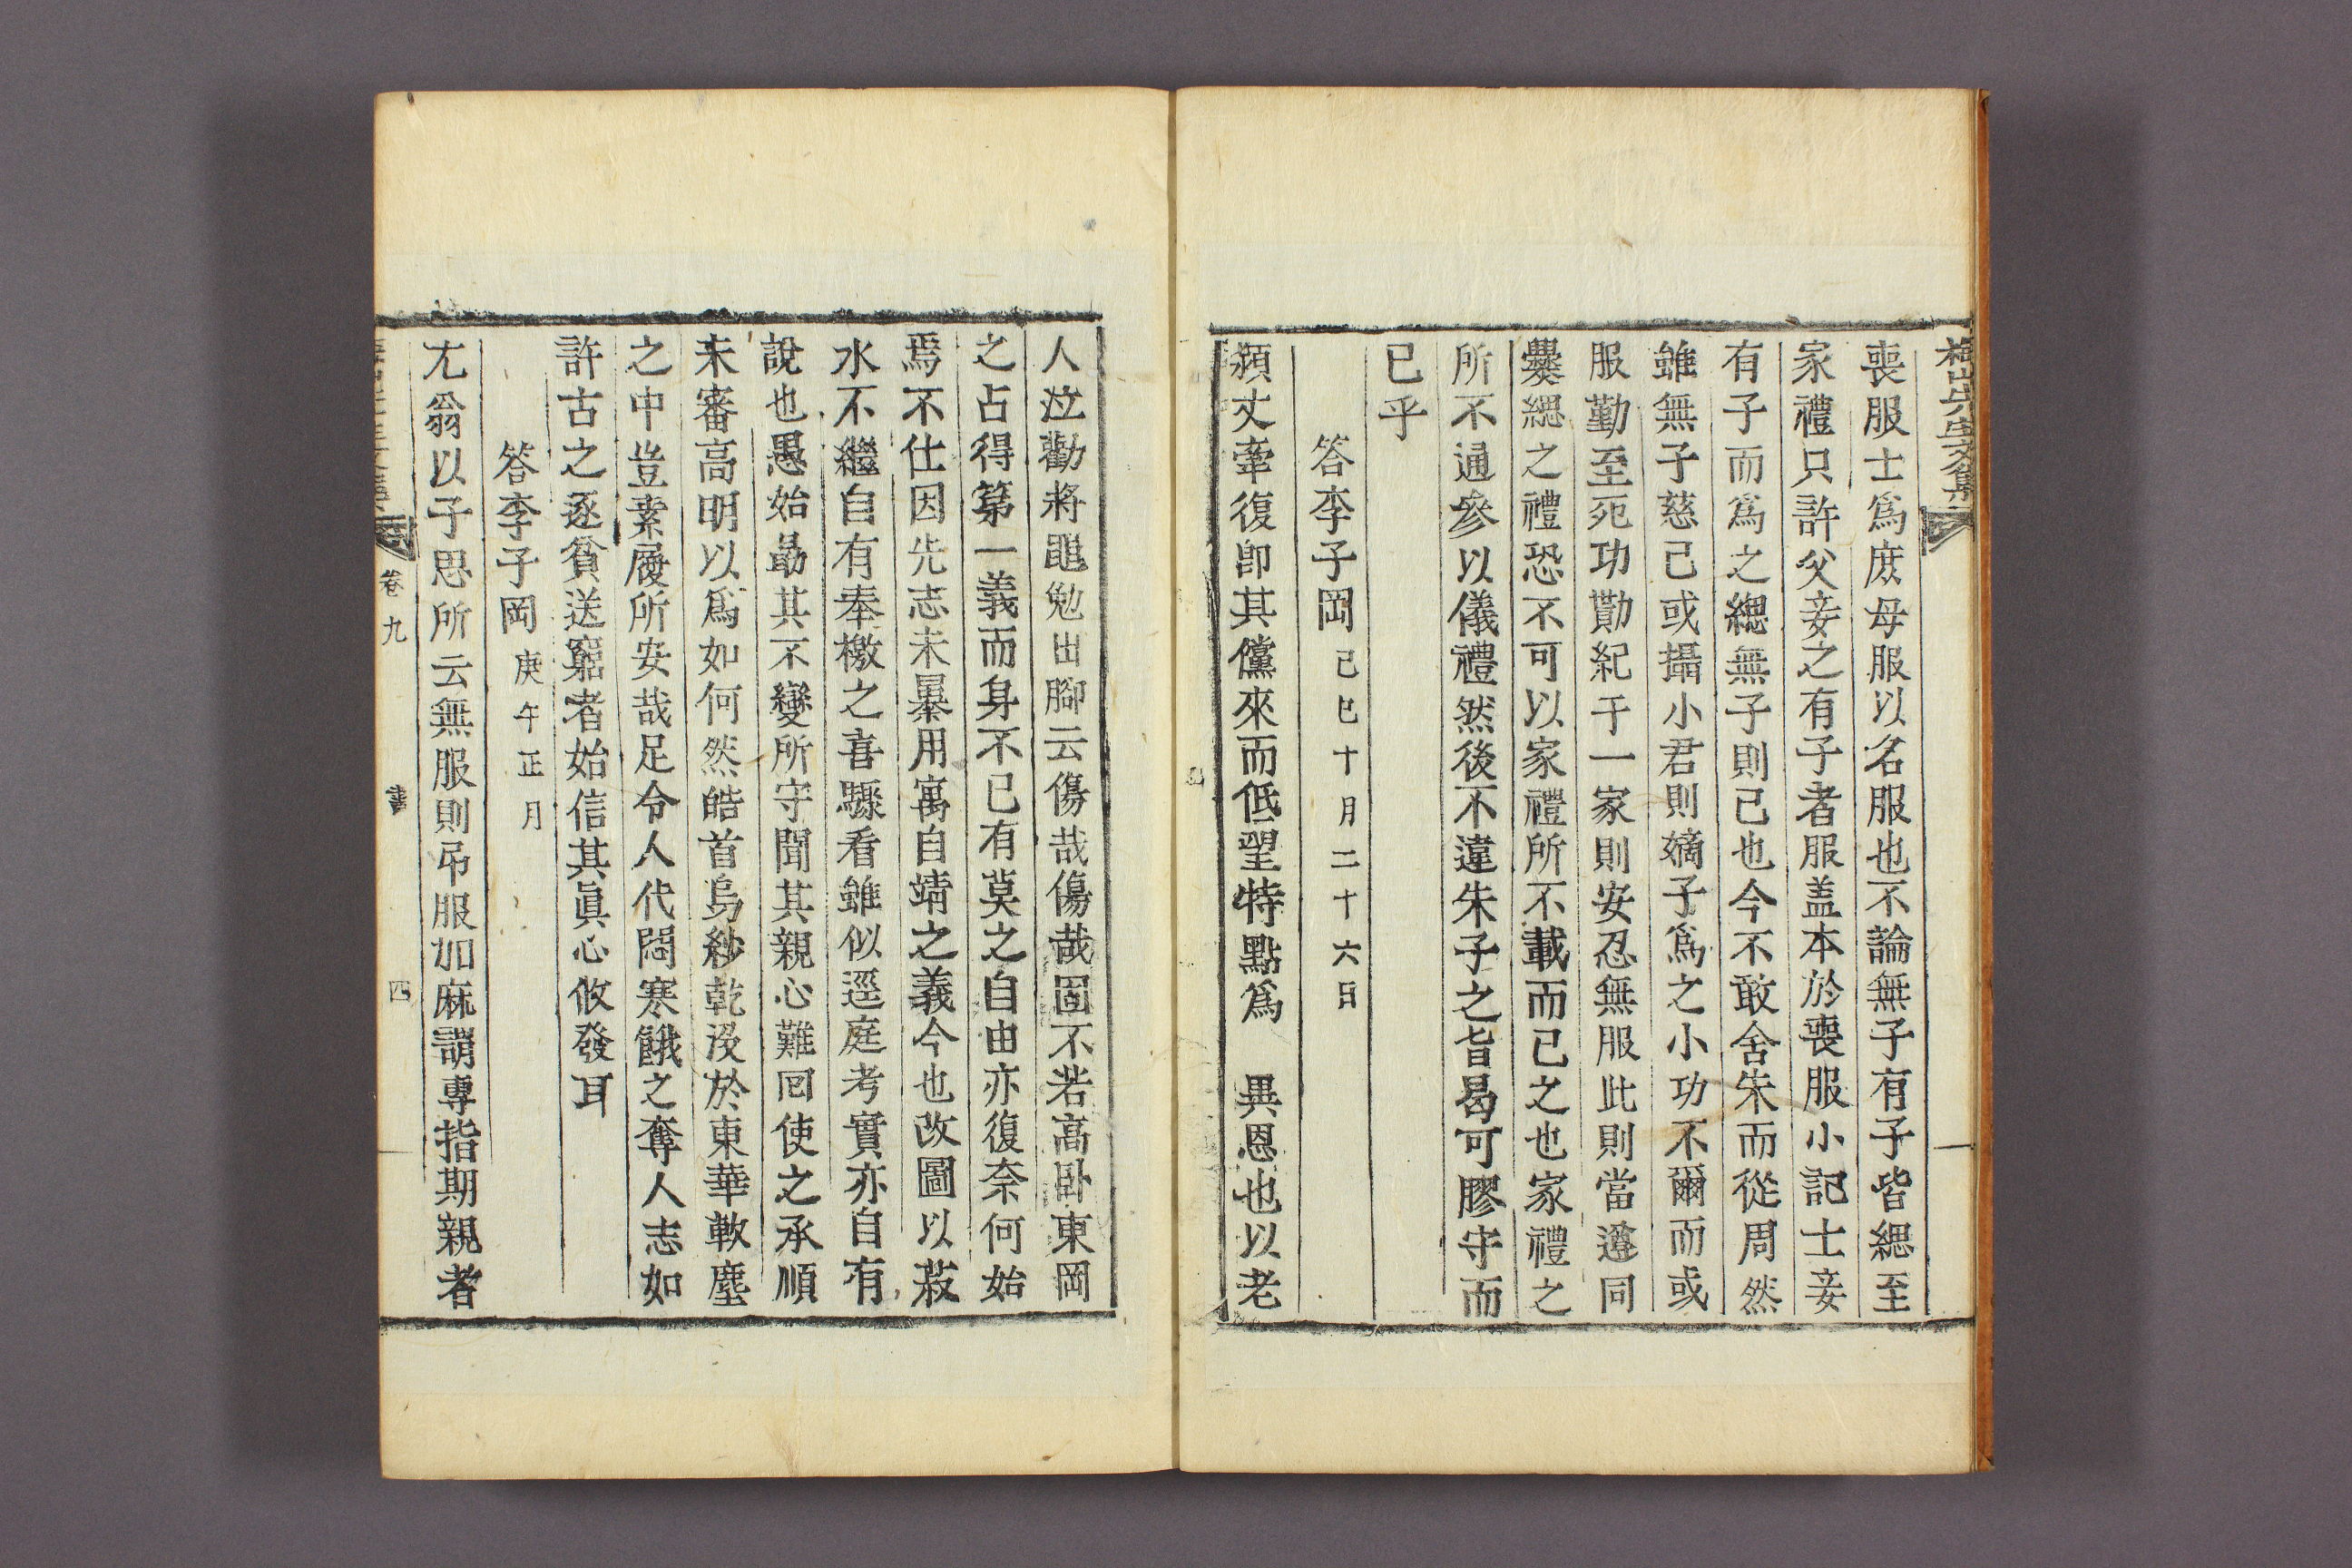 梅山先生文集
喪服士爲庶母服以名服也不論無子有子皆緦至
家禮只許父妾之有子者服盖本於喪服小記士妾
有子而爲之緦無子則已也今不敢舍朱而從周然
雖無子慈己或攝小君則嫡子爲之小功不爾而或
服勤至死功勩紀于一家則安忍無服此則當遵同
爨緦之禮恐不可以家禮所不載而已之也家禮之
所不通參以儀禮然後不違朱子之旨曷可膠守而
已乎
答李子岡己巳十月二十六日
潁丈牽復卽其儻來而低望特點爲 異恩也以老
人泣勸將黽勉出脚云傷哉傷哉固不若高卧東岡
之占得第一義而身不已有莫之自由亦復奈何始
焉不仕因先志未暴用寓自靖之義今也改圖以菽
水不繼自有奉檄之喜驟看雖似逕庭考實亦自有
說也愚始勗其不變所守聞其親心難回使之承順
未審高明以爲如何然皓首烏紗乾沒於東華軟塵
之中豈素履所安哉足令人代悶寒餓之奪人志如
許古之逐貧送窮者始信其眞心攸發耳
答李子岡庚午正月
尤翁以子思所云無服則吊服加麻謂專指期親者
卷九
書
四